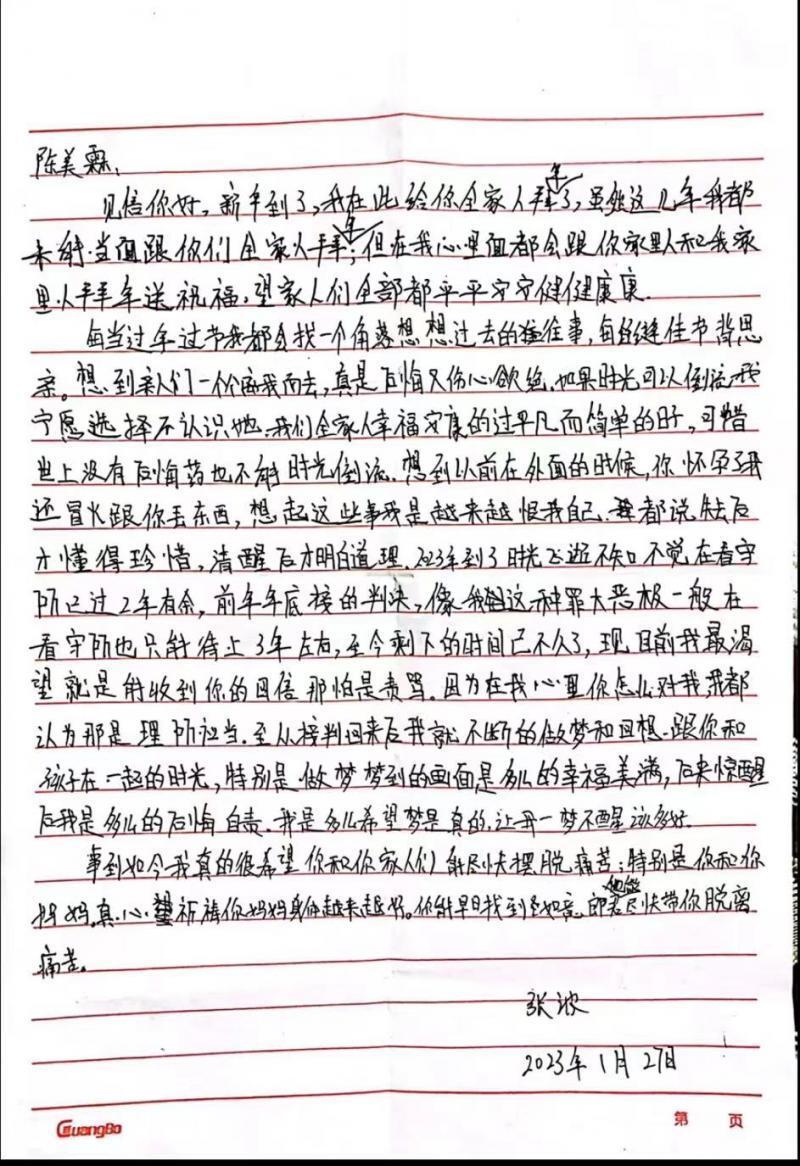 陈美霖:
见信你好,新年到了,我在此给你全家人拜年了,虽然这几年我都
未能当面跟你们全家人拜年;但在我心里面都会跟你家里人和我家
里人拜年送祝福,望家人们全部都平平安安健健康康.
每当过年过节我都会找一个角落想想过去的往事,每经逢佳节背思
亲。想到亲人们一个个离我而去,真是后悔又伤心欲绝.如果时光可以倒流我
宁愿选择不认识她.我们全家人幸福安康的过平凡而简单的日子,可惜
世上没有后悔药也不能时光倒流.想到以前在外面的时候,你怀孕了我
还冒火跟你丢东西,想起这些事我是越来越恨我自己.都说失去后
才懂得珍惜,清醒后才明白道理.2023年到了时光飞逝不知不觉在看守
所已过2年有余,前年年底接的判决,像我这种罪大恶极一般在
看守所也只能待上3年左右,至今剩下的时间已不久了,现目前我最渴
望就是能收到你的回信那怕是责骂.因为在我心里你怎么对我我都
认为那是理所应当.至从接判回来后我就不断的做梦和回想.跟你和
孩子在一起的时光,特别是做梦梦到的画面是多么的幸福美满,后来惊醒
后我是多么的后悔自责.我是多么希望梦是真的.让我一梦不醒该多好.
事到如今我真的很希望你和你家人们能尽快摆脱痛苦;特别是你和你
妈妈.真心祈祷你妈妈身体越来越好。你能早日找到如意郎君他能尽快带你脱离
痛苦。
张波
2023年1月27日
GuangBo
第 页